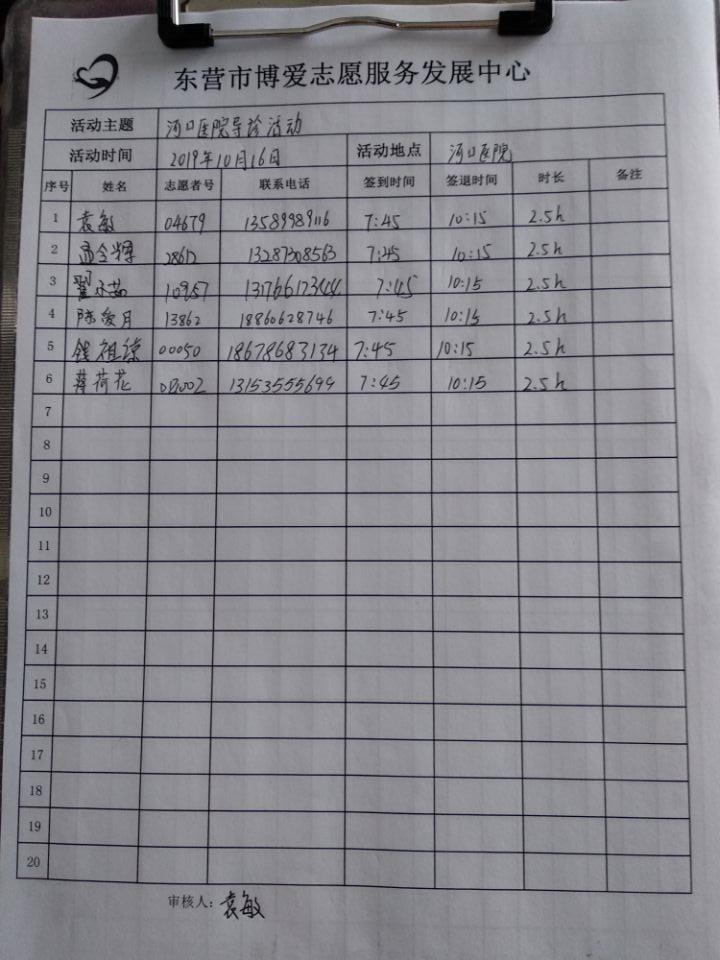 东营市博爱志愿服务发展中心
活动主题 河口医院导诊活动
活动时间 2019年10月16日 活动地点 河口医院
序号 姓名 志愿者号 联系电话 签到时间 签退时间 时长 备注
1 袁敏 04679 13589989116 7:45 10:15 2.5h
2 28612 13287308563 7:45 10:15 2.5h
3 10957 7:45 10:15 2.5h
4 陈爱月 13862 18860628746 7:45 10:15 2.5h
5 钱祖 00050 18678683134 7:45 10:15 2.5h
6 荷花 13153555699 7:45 10:15 2.5h
7
8
9
10
11
12
13
14
15
16
17
18
19
20
审核人：袁敏